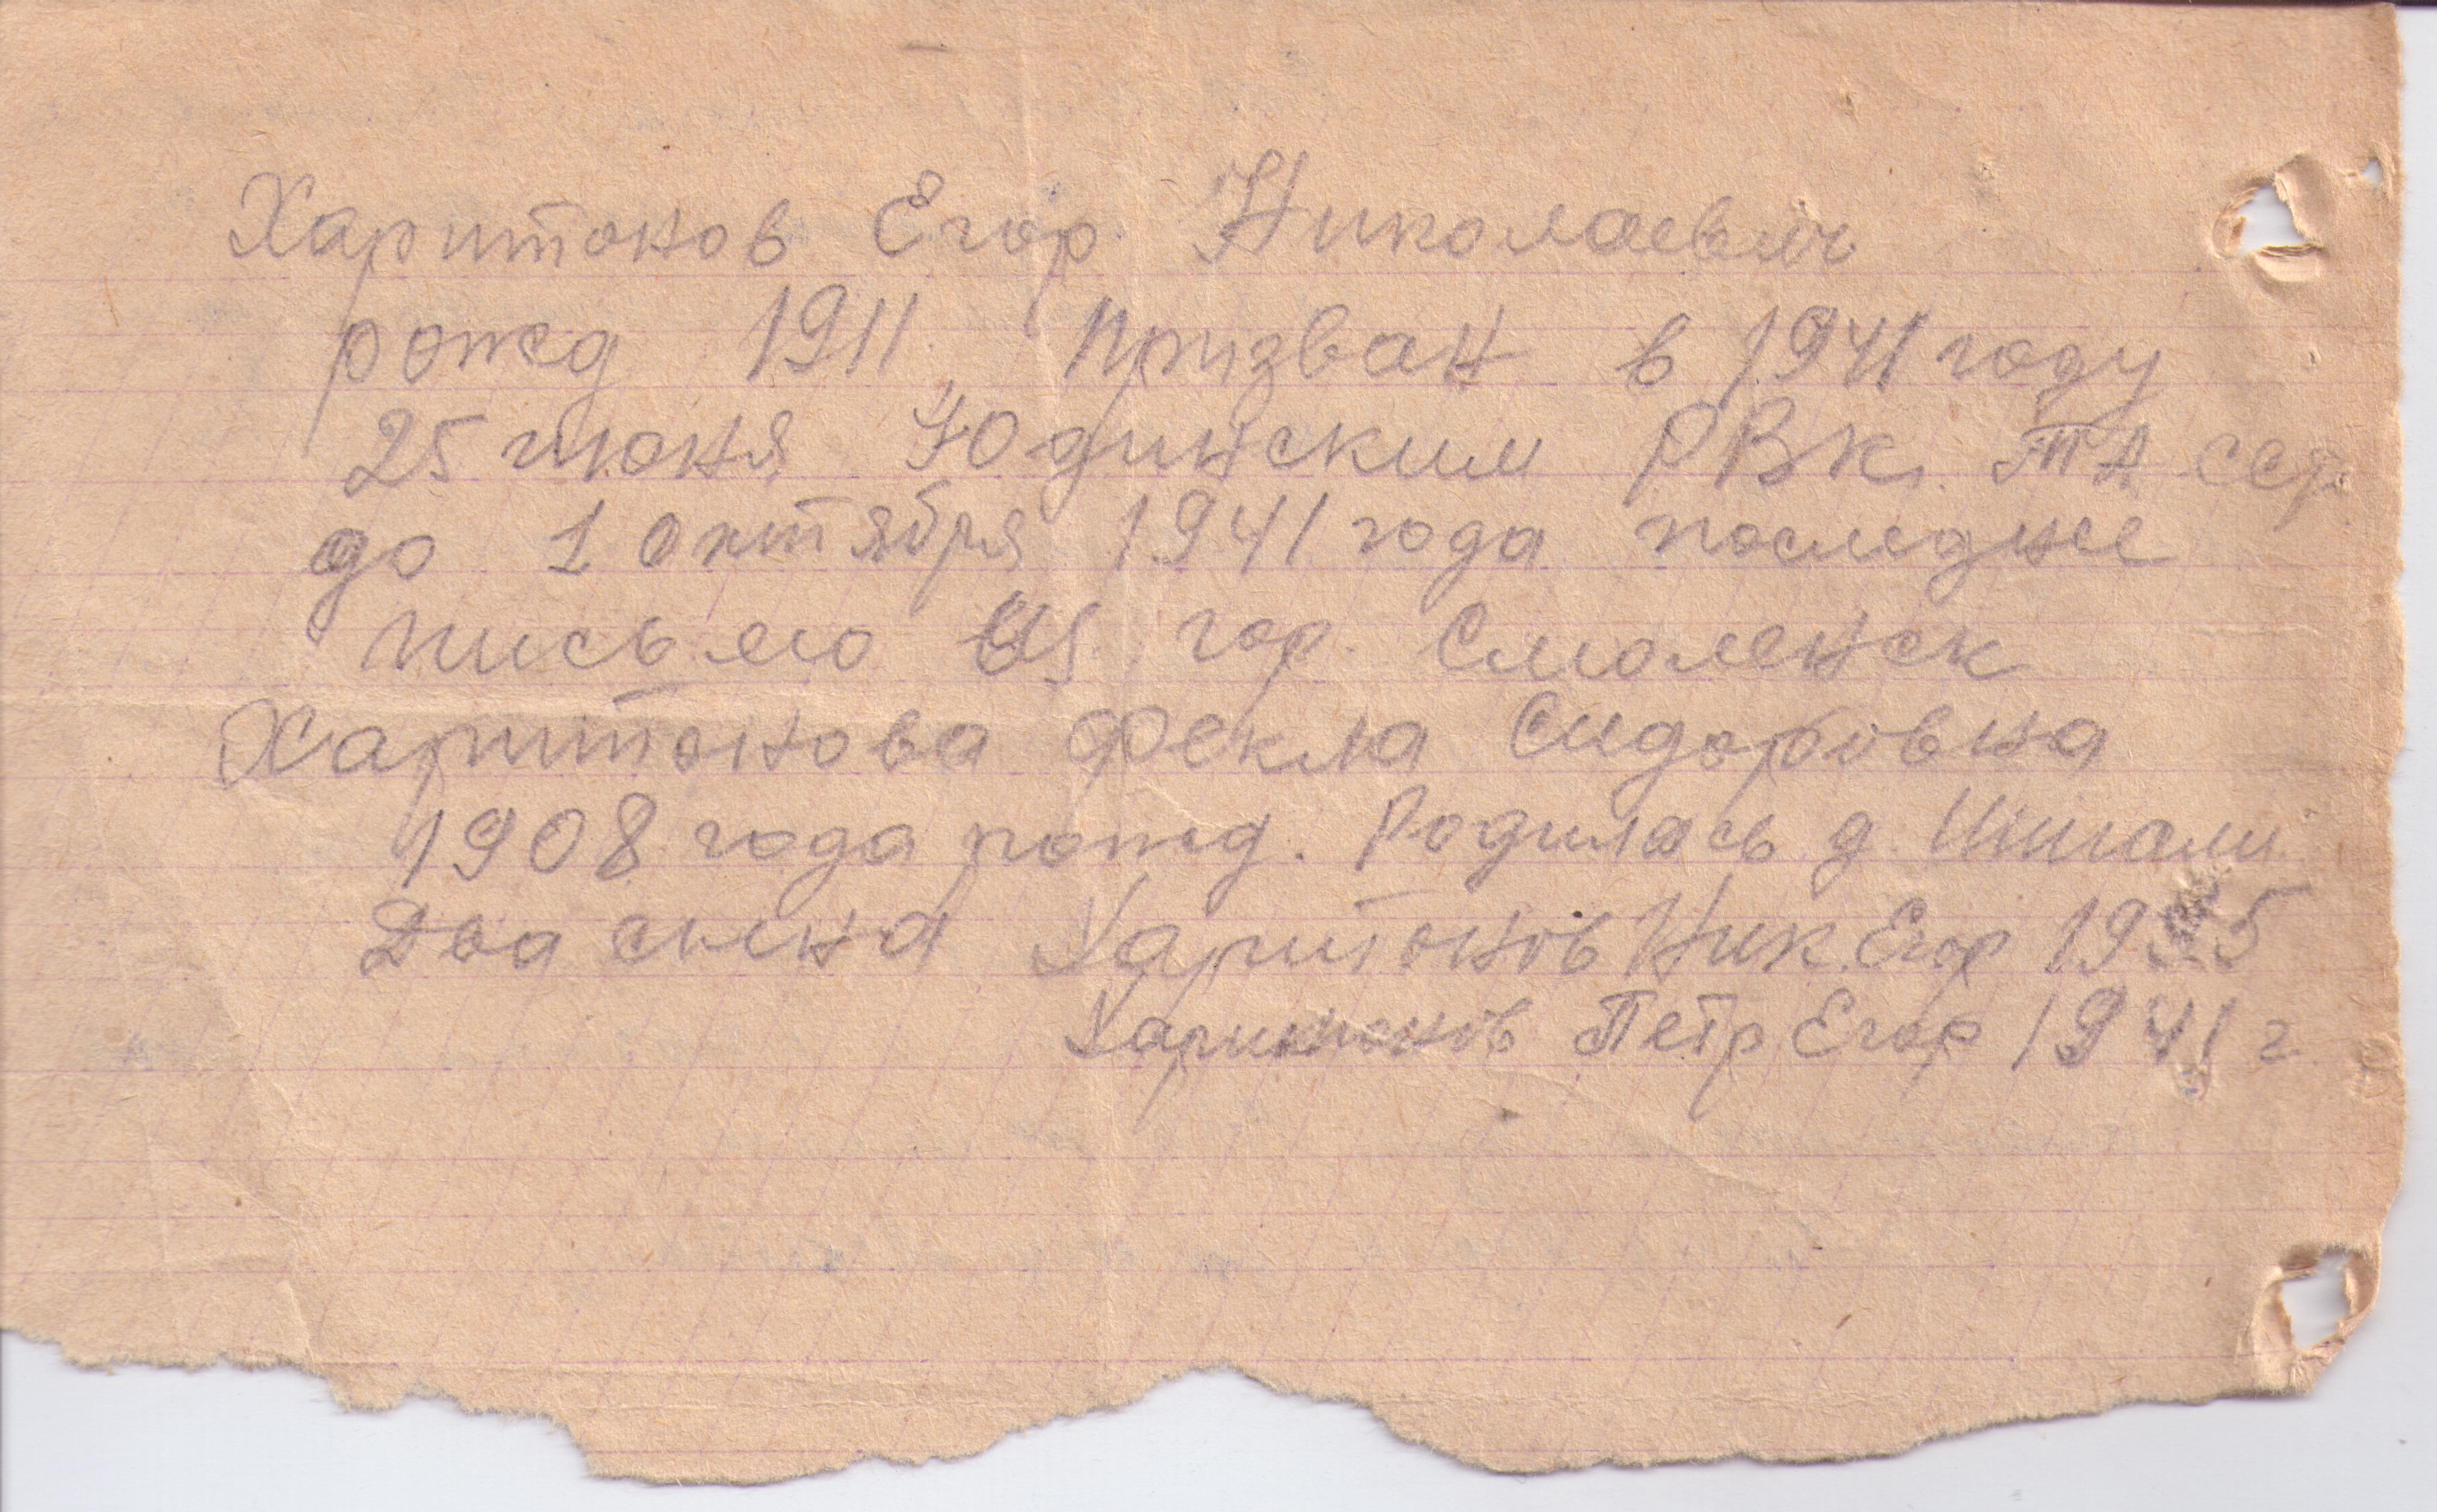 Харитонов Егор Николаевич
рожд 1911 Призван в 1941 году
25 июня Юдинским РВК. ТА ССР
до 1 октября 1941 года последнее
письмо из гор. Смоленск
Харитонова Фекла Сидоровна
1908 года рожд. Родилась д. Шигали
Два сына Харитонов Ник. Егор
Харитонов Петр Егор 1941 г.